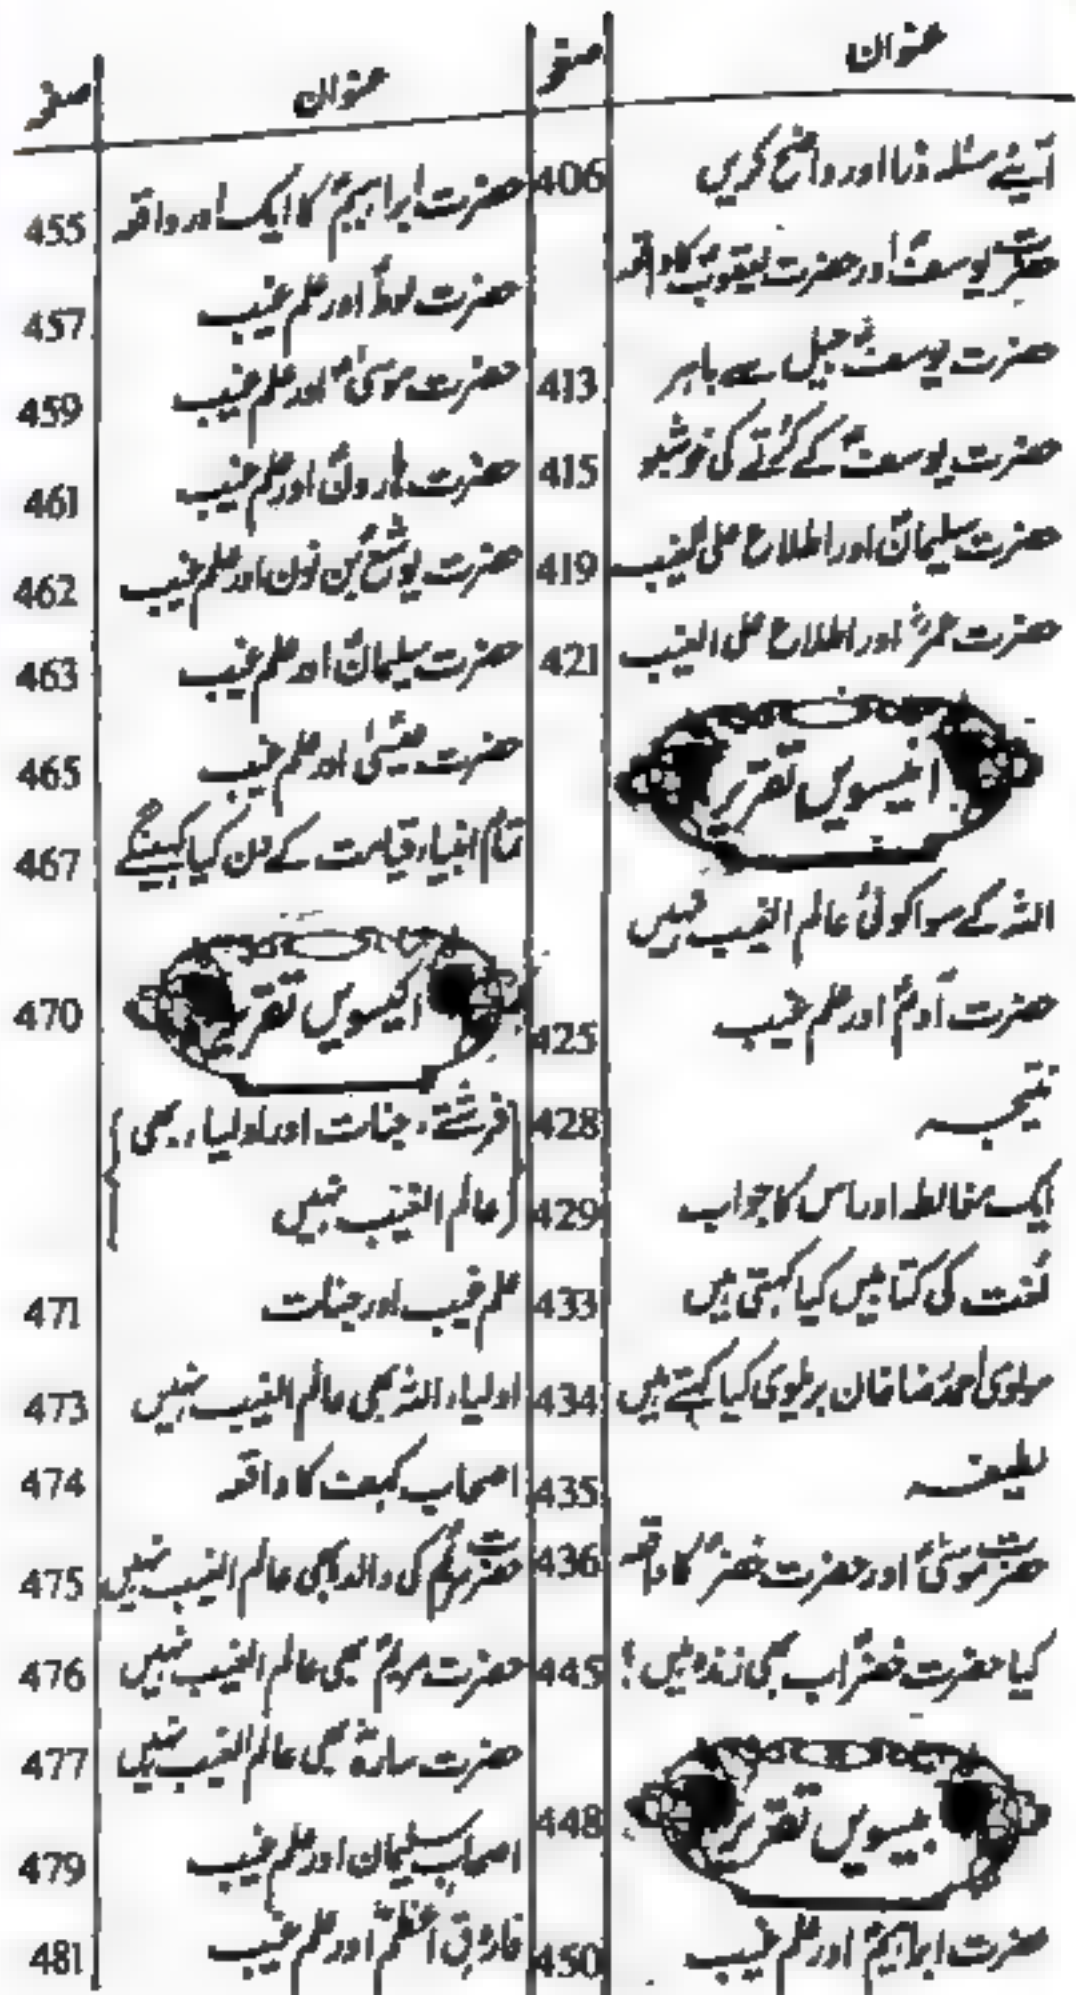 عنوان صفحہ
آیئے مسئلہ ذرا اور واضح کریں 406
حضرت یوسفؑ اور حضرت یعقوبؑ کا واقعہ
حضرت یوسفؑ جیل سے باہر 413
حضرت یوسفؑ کے کُرتے کی خوشبو 415
حضرت سلیمانؑ اور اطلاع علی الغیب 419
حضرت عمرؓ اور اطلاع علی الغیب 421
انیسویں تقریر
اللہ کے سوا کوئی عالم الغیب نہیں
حضرت آدمؑ اور علم غیب 425
نتیجہ 428
ایک مغالطہ اور اس کا جواب 429
لُغت کی کتابیں کیا کہتی ہیں 433
مولوی احمد رضا خان بریلوی کیا کہتے ہیں 434
لطیفہ 435
حضرت موسیٰؑ اور حضرت خضرؑ کا واقعہ 436
کیا حضرت خضرؑ اب بھی زندہ ہیں؟ 445
بیسویں تقریر 448
حضرت ابراہیمؑ اور علم غیب 450
عنوان صفحہ
حضرت ابراہیمؑ کا ایک اور واقعہ 455
حضرت لوطؑ اور علم غیب 457
حضرت موسیٰؑ اور علم غیب 459
حضرت ہارونؑ اور علم غیب 461
حضرت یوشعؑ بن نون اور علم غیب 462
حضرت سلیمانؑ اور علم غیب 463
حضرت عیسیٰؑ اور علم غیب 465
تمام انبیاء قیامت کے دن کیا کہینگے 467
اکیسویں تقریر 470
فرشتے، جنات اور اولیاء بھی
عالم الغیب نہیں
علم غیب اور جنات 471
اولیاء اللہ بھی عالم الغیب نہیں 473
اصحاب کہف کا واقعہ 474
حضرت مریمؑ کی والدہ بھی عالم الغیب نہیں 475
حضرت مریمؑ بھی عالم الغیب نہیں 476
حضرت سارہؑ بھی عالم الغیب نہیں 477
اصحاب سلیمان اور علم غیب 479
فاروق اعظمؓ اور علم غیب 481